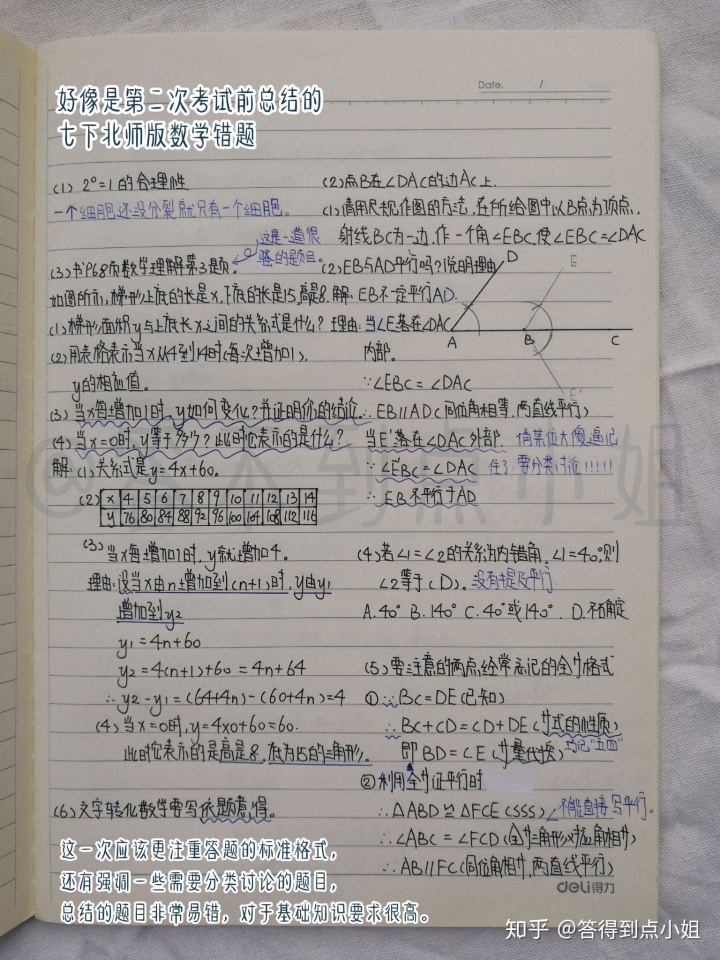 Date. /
好像是第二次考试前总结的
七下北师版数学错题
(1) 2⁰=1的合理性
一个细胞还没分裂就只有一个细胞。
这是一道很
骚的题目。
(3) 书P68页数学理解第3题。
如图所示,梯形上底的长是x,下底的长是15,高是8.
(1)梯形面积y与上底长x之间的关系式是什么?
(2)用表格表示当x从4变到14时(每次增加1),
y的相应值。
(3)当x每增加1时,y如何变化?并证明你的结论.
(4)当x=0时,y等于多少?此时它表示的是什么?
解:(1)关系式是y=4x+60。
(2) x 4 5 6 7 8 9 10 11 12 13 14
y 76 80 84 88 92 96 100 104 108 112 116
(3)当x每增加1时,y就增加4。
理由:设当x由n增加到(n+1)时,y由y₁
增加到y₂
y₁=4n+60
y₂=4(n+1)+60=4n+64
∴y₂-y₁=(64+4n)-(60+4n)=4
(4)当x=0时,y=4×0+60=60.
此时它表示的是高是8,底为15的三角形。
(6)文字转化数学要写依题意,得。
(2)点B在∠DAC的边AC上.
(1)请用尺规作图的方法,在所给图中以B点为顶点.
射线BC为一边,作一个角∠EBC,使∠EBC=∠DAC
(2)EB与AD平行吗?说明理由
解:EB不一定平行AD.
理由:当∠E落在∠DAC
内部.
D
E
A B C
E'
∵∠EBC=∠DAC
∴EB∥AD(同位角相等,两直线平行)
当E'落在∠DAC外部.
∵∠E'BC=∠DAC
∴EB不平行于AD
住了要分类讨论!!!!!
(4)若∠1=∠2的关系为内错角,∠1=40°,则
∠2等于(D)。没有提及平行
A.40° B.140° C.40°或140° D.不确定
(5)要注意的两点,经常忘记的全等格式
①∵BC=DE(已知)
∴BC+CD=CD+DE(等式的性质)
即BD=CE(等量代换)巧记“五四”
②利用全等证平行时
∴△ABD≌△FCE(SSS)不能直接写平行。
∴∠ABC=∠FCD(全等三角形对应角相等)
∴AB∥FC(同位角相等,两直线平行)
这一次应该更注重答题的标准格式,
还有强调一些需要分类讨论的题目,
总结的题目非常易错,对于基础知识要求很高。
deli得力
知乎 @答得到点小姐